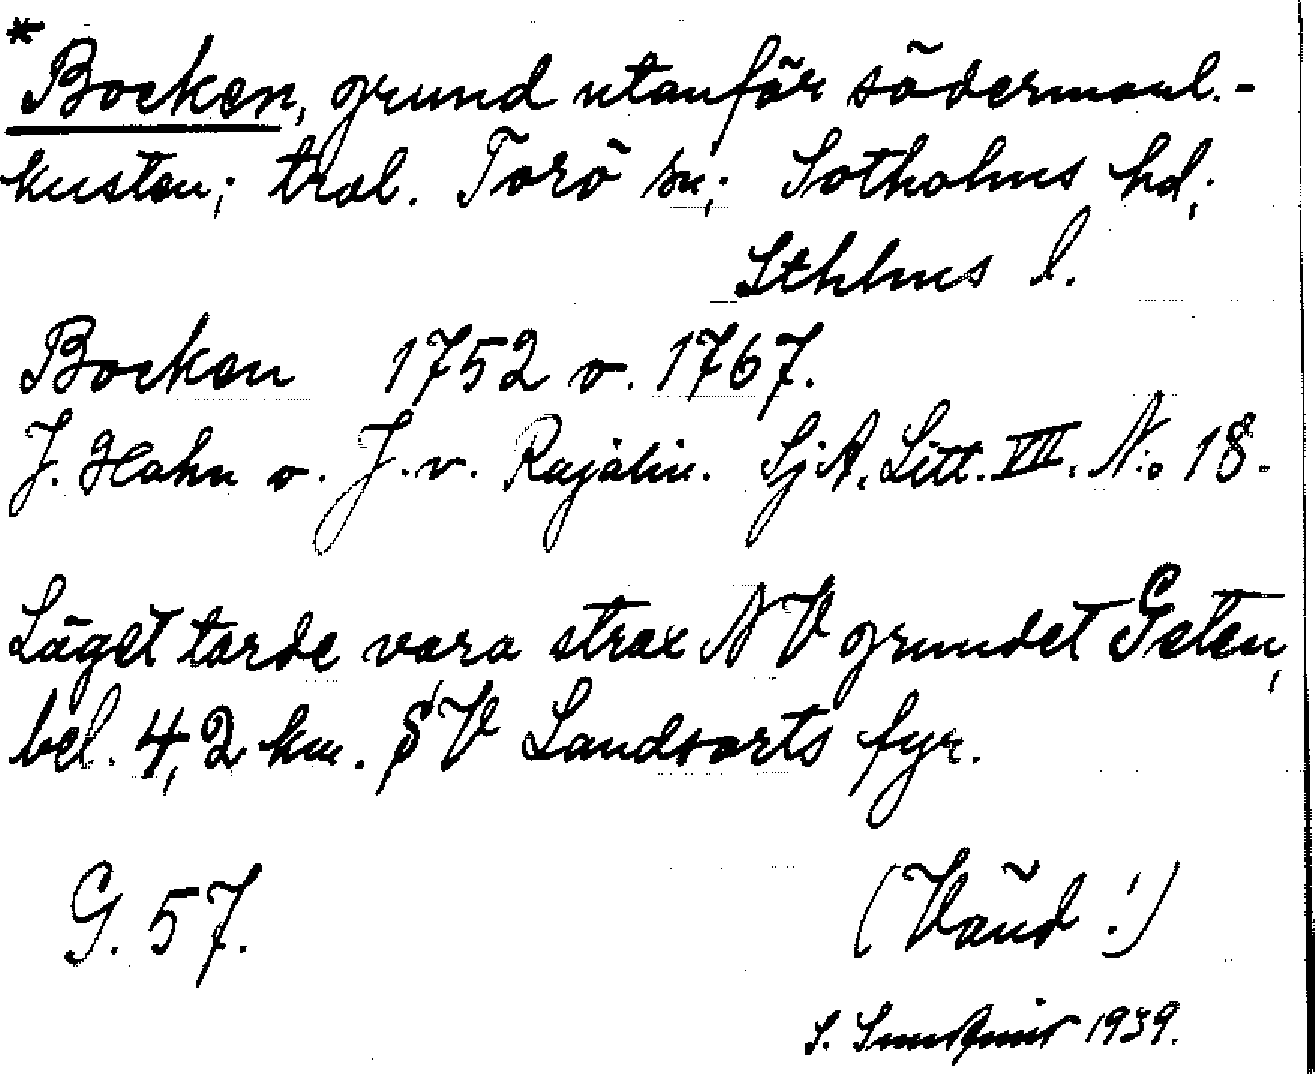 *Bocken, grund utanför södermanl.-
kusten; trol. Torö sn; Sotholms hd;
Sthlms l.
Bocken 1752 o. 1767.
J. Hahn o. J. v. Rajalin. SjA. Litt. VII. No 18.
Läget torde vara strax NV grundet Geten,
bel. 4,2 km. SV Landsorts fyr.
G. 57.
(Vänd!)
S. 1939.